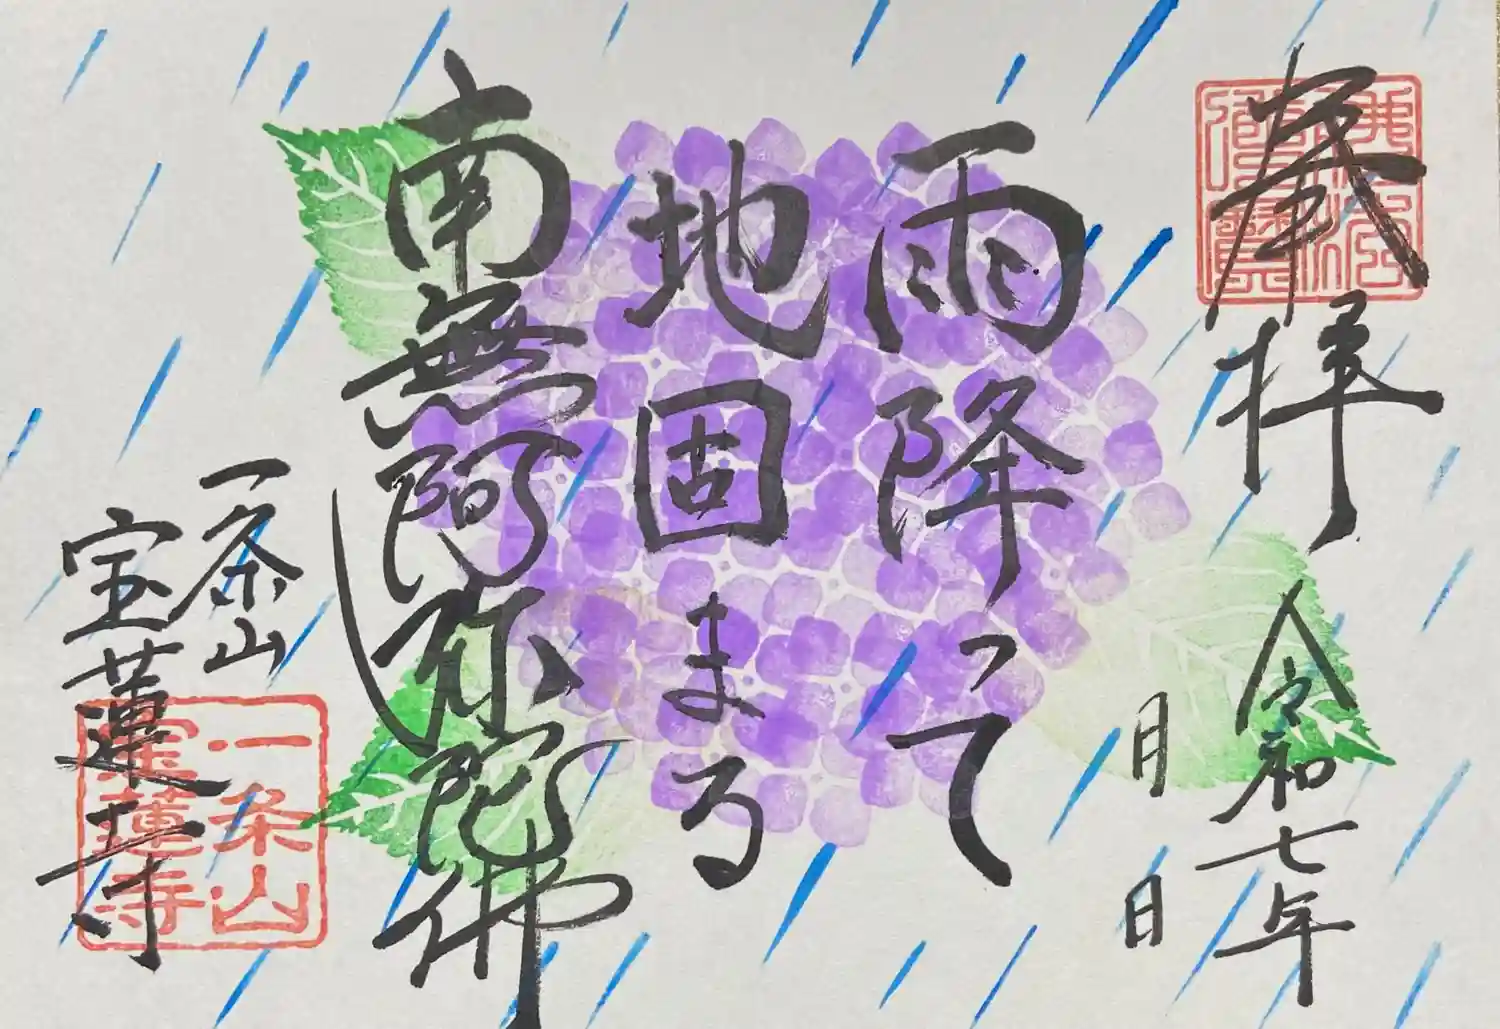 奉拝
令和七年
月 日
雨降って
地固まる
南無阿弥陀佛
一条山
宝蓮寺
一条山
宝蓮寺